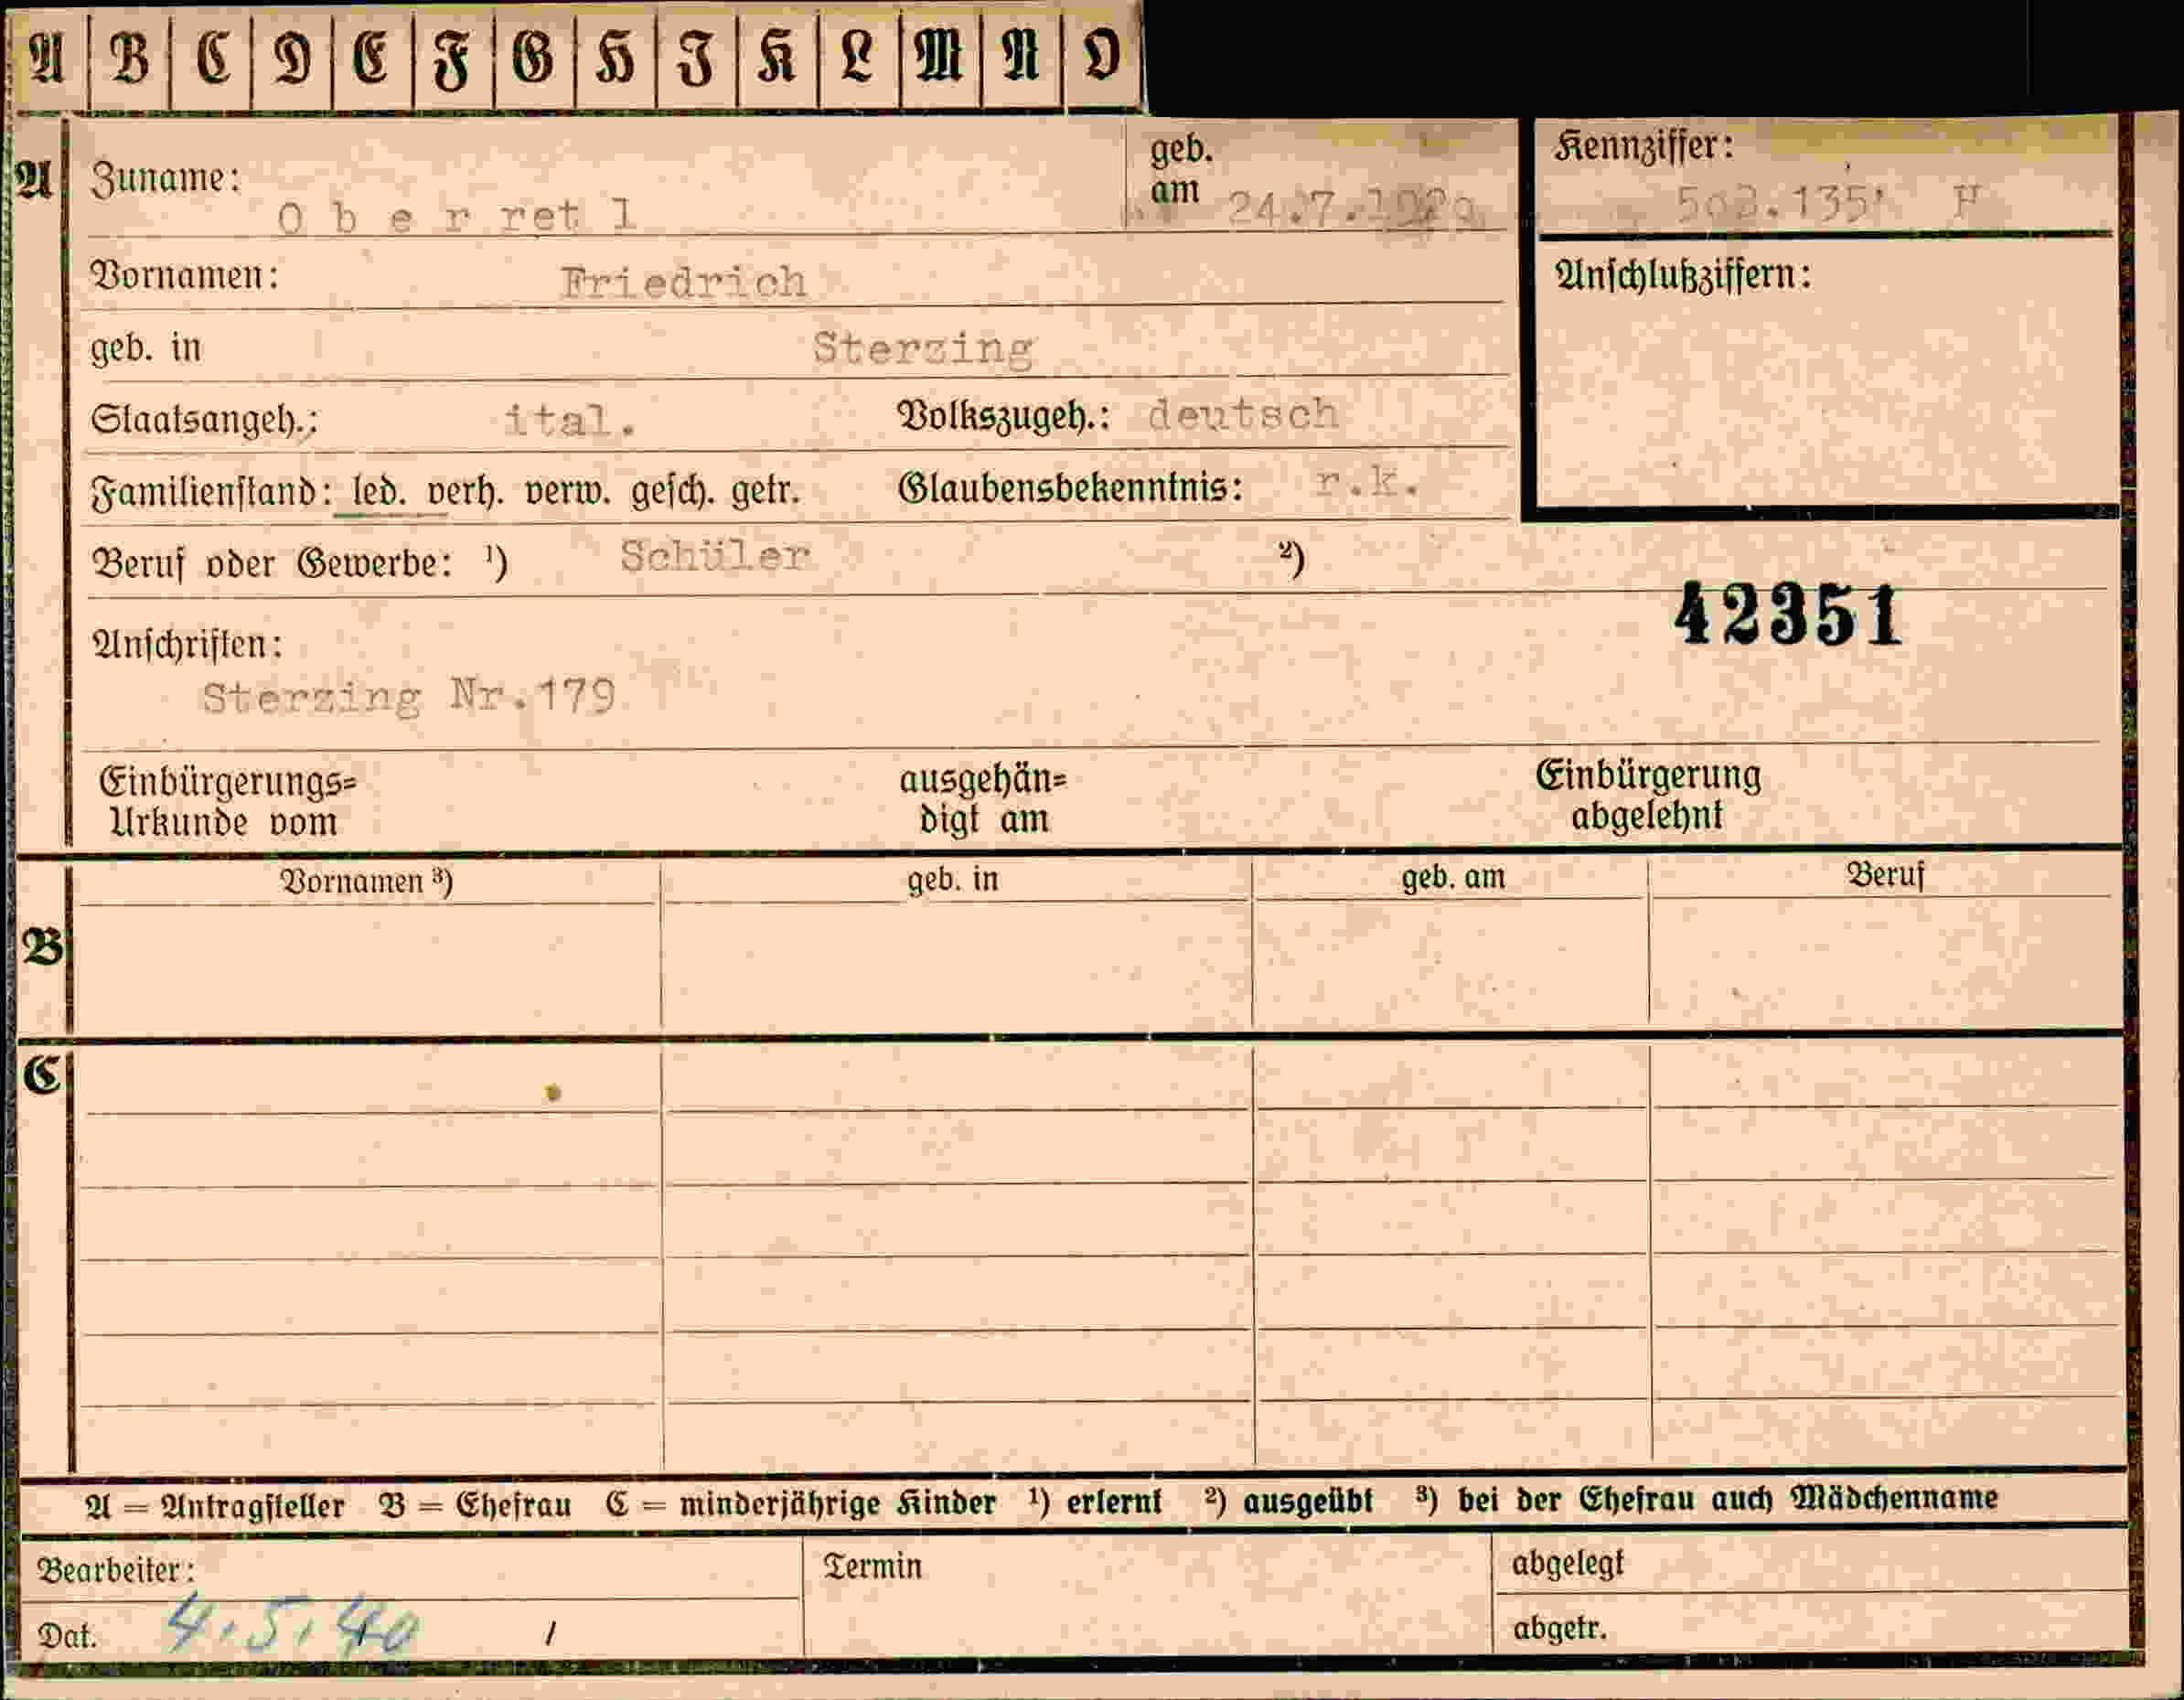 A B C D E F G H I K L M N O
A Zuname: geb.
O b e r ret l am 24.7.1929
Kennziffer:
135 H
Vornamen: Friedrich
Anschlußziffern:
geb. in Sterzing
Staatsangeh.: ital. Volkszugeh.: deutsch
Familienstand: led. verh. verw. gesch. getr. Glaubensbekenntnis: r.k.
Beruf oder Gewerbe: ¹) Schüler ²)
42351
Anschriften:
Sterzing Nr.179
Einbürgerungs= ausgehän= Einbürgerung
Urkunde vom digt am abgelehnt
Vornamen ³) geb. in geb. am Beruf
B
C
A = Antragsteller B = Ehefrau C = minderjährige Kinder ¹) erlernt ²) ausgeübt ³) bei der Ehefrau auch Mädchenname
Bearbeiter: Termin abgelegt
Dat. 4.5.40 / abgetr.